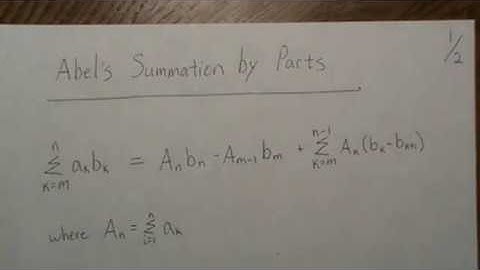 Abel's Summation by Parts
1/2
n∑k=m aₖbₖ = Aₙbₙ - Aₘ₋₁bₘ + n-1∑k=m Aₖ(bₖ-bₖ₊₁)
where Aₙ = n∑i=1 aₖ